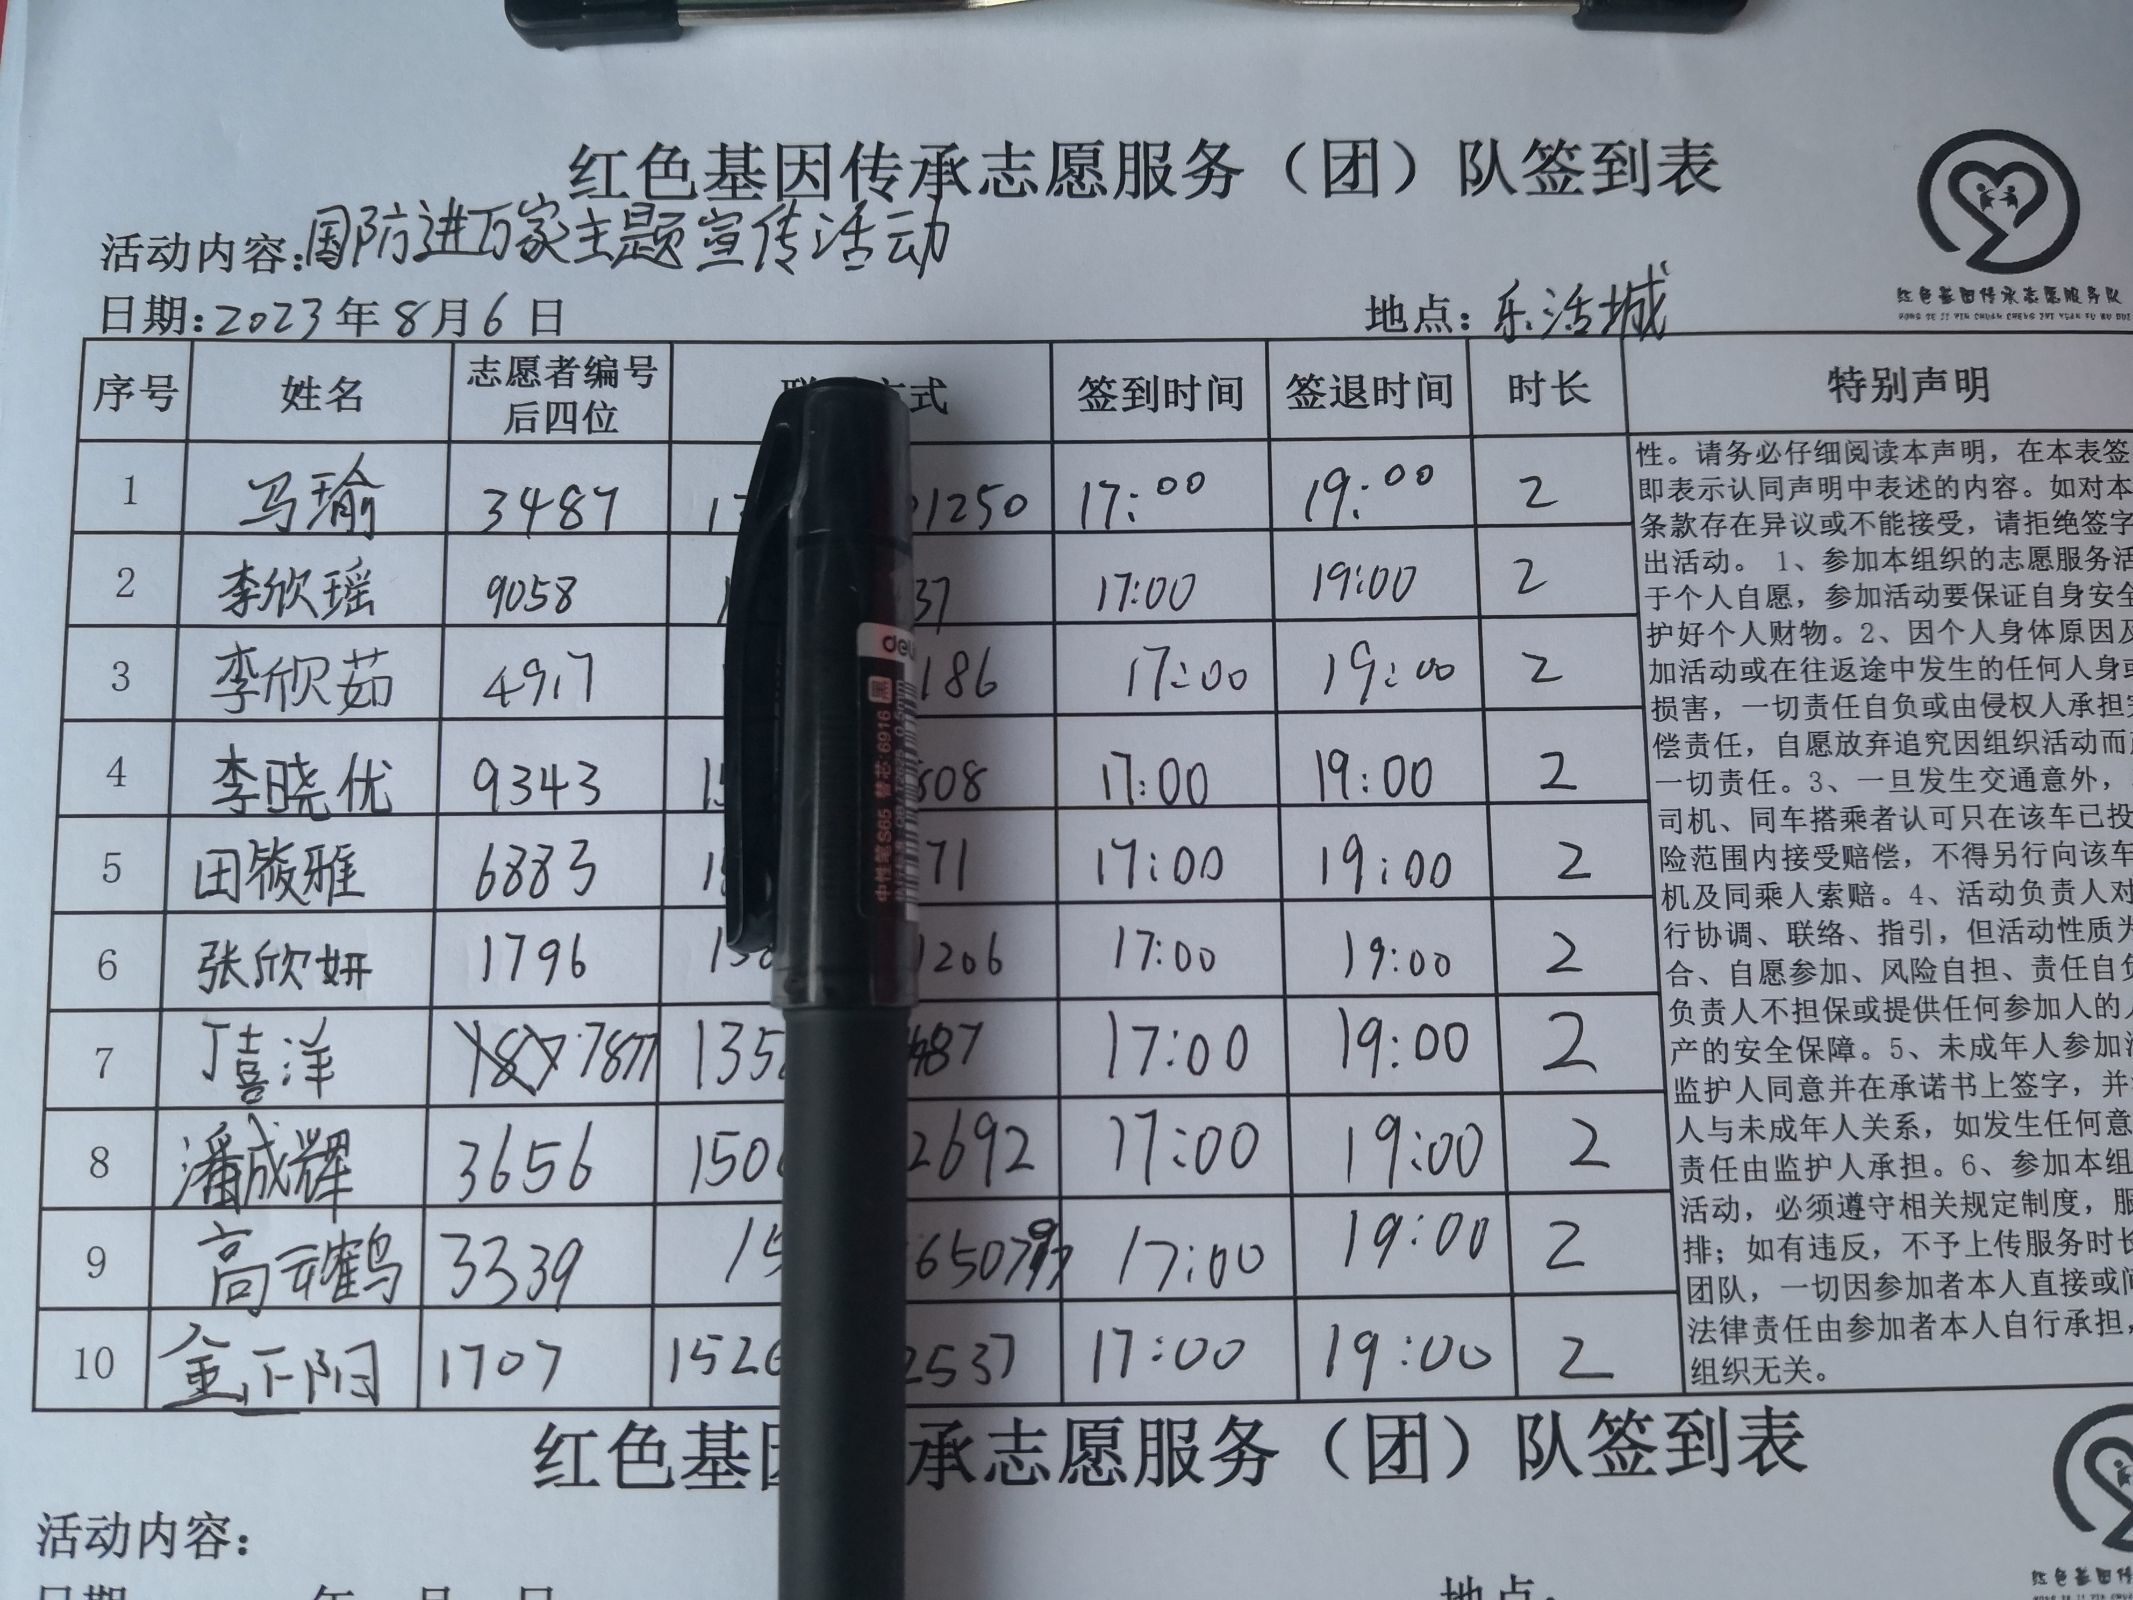 红色基因传承志愿服务（团）队签到表
活动内容：国防进万家主题宣传活动
日期：2023年8月6日 地点：乐活城
红色基因传承志愿服务队
HONG SE JI YIN CHUAN CHENG ZHI YUAN FU WU DUI
序号 姓名 志愿者编号后四位 方式 签到时间 签退时间 时长 特别声明
1 马瑜 3487 1250 17:00 19:00 2
2 李欣瑶 9058 37 17:00 19:00 2
3 李欣茹 4917 186 17:00 19:00 2
4 李晓优 9343 508 17:00 19:00 2
5 田筱雅 6883 71 17:00 19:00 2
6 张欣妍 1796 1206 17:00 19:00 2
7 丁喜洋 7877 135 487 17:00 19:00 2
8 潘成辉 3656 150 2692 17:00 19:00 2
9 高云鹤 3339 15 65079 17:00 19:00 2
10 金正阳 1707 152 2537 17:00 19:00 2
性。请务必仔细阅读本声明，在本表签
即表示认同声明中表述的内容。如对本
条款存在异议或不能接受，请拒绝签字
出活动。 1、参加本组织的志愿服务活
于个人自愿，参加活动要保证自身安全
护好个人财物。2、因个人身体原因及
加活动或在往返途中发生的任何人身或
损害，一切责任自负或由侵权人承担完
偿责任，自愿放弃追究因组织活动而
一切责任。3、一旦发生交通意外，
司机、同车搭乘者认可只在该车已投
险范围内接受赔偿，不得另行向该车
机及同乘人索赔。4、活动负责人对
行协调、联络、指引，但活动性质为
合、自愿参加、风险自担、责任自负
负责人不担保或提供任何参加人的人
产的安全保障。5、未成年人参加活
监护人同意并在承诺书上签字，并
人与未成年人关系，如发生任何意
责任由监护人承担。6、参加本组
活动，必须遵守相关规定制度，服
排；如有违反，不予上传服务时长
团队，一切因参加者本人直接或间
法律责任由参加者本人自行承担，
组织无关。
deli
中性笔S65 替芯:6916 黑
0.5mm
红色基因承志愿服务（团）队签到表
活动内容：
日期 年 月 日 地点：
红色基因传